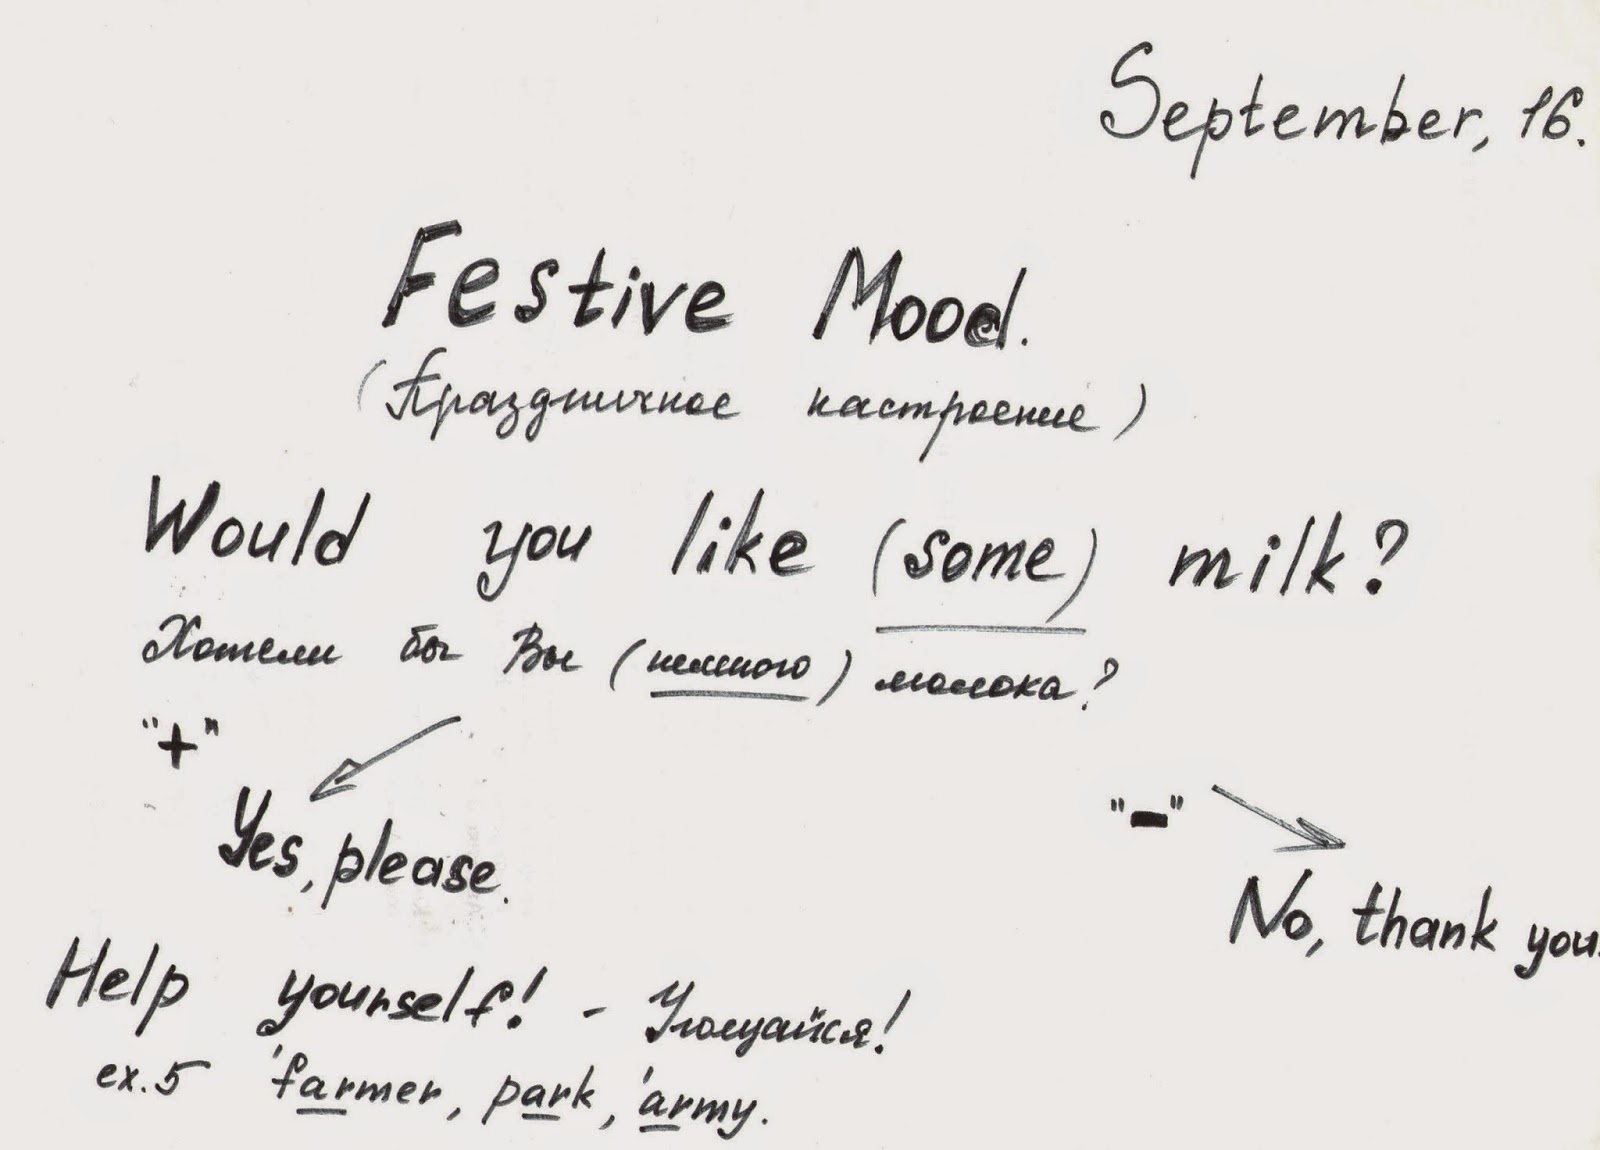 September, 16.
Festive Mood.
(Праздничное настроение)
Would you like (some) milk?
Хотели бы Вы (немного) молока?
"+"
"-"
Yes, please.
No, thank you.
Help yourself! - Угощайся!
ex. 5 'farmer, park, 'army.